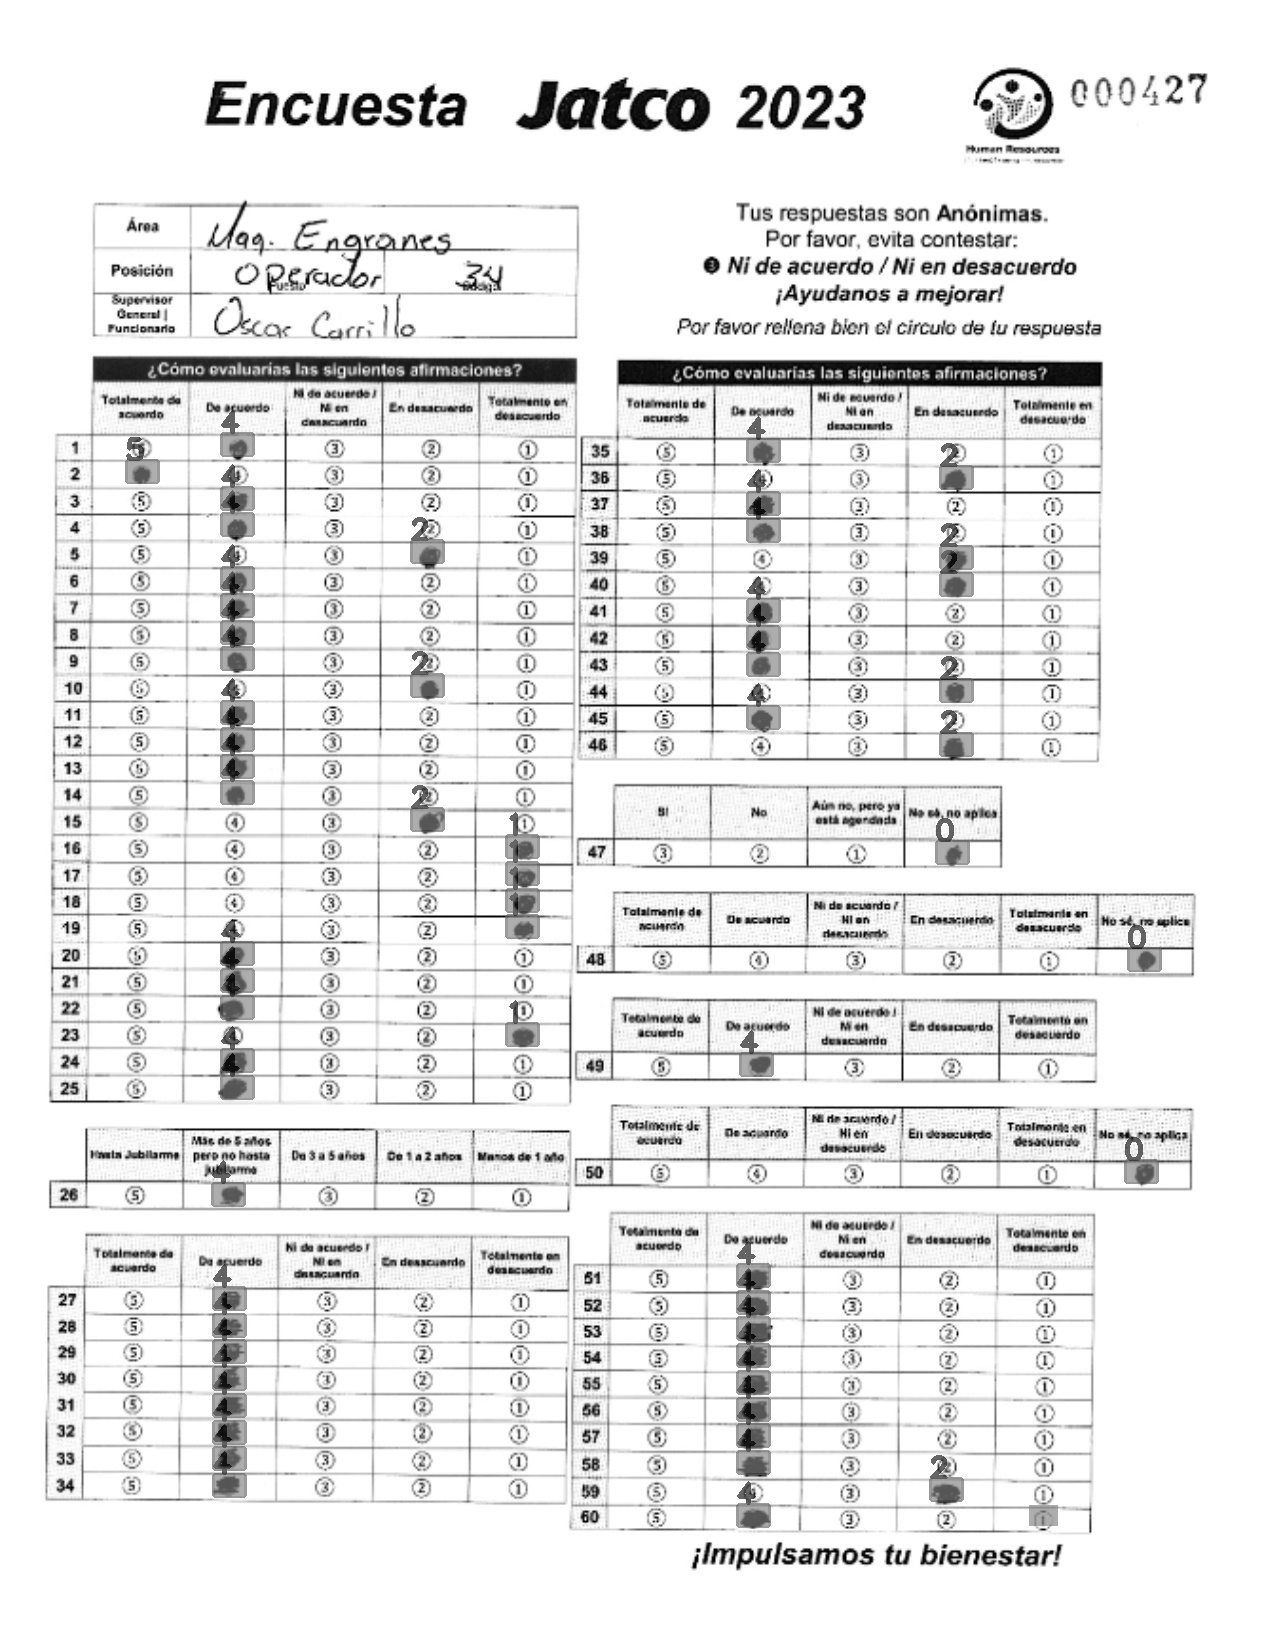 Encuesta Jatco 2023
Human Resources
000427
Área
Maq. Engranes
Posición
Operador
34
Supervisor
General |
Funcionario
Oscar Carrillo
Tus respuestas son Anónimas.
Por favor, evita contestar:
❸ Ni de acuerdo / Ni en desacuerdo
¡Ayudanos a mejorar!
Por favor rellena bien el circulo de tu respuesta
¿Cómo evaluarías las siguientes afirmaciones?
Totalmente de acuerdo De acuerdo Ni de acuerdo / Ni en desacuerdo En desacuerdo Totalmente en desacuerdo
1 4 ③ ② ①
2 5 ③ ② ①
3 ⑤ 4 ③ ② ①
4 ⑤ 4 ③ ①
5 ⑤ ③ 2 ①
6 ⑤ 4 ③ ② ①
7 ⑤ 4 ③ ② ①
8 ⑤ 4 ③ ② ①
9 ⑤ 4 ③ ①
10 ⑤ ③ 2 ①
11 ⑤ 4 ③ ② ①
12 ⑤ 4 ③ ② ①
13 ⑤ 4 ③ ② ①
14 ⑤ 4 ③ ①
15 ⑤ ④ ③ 2 ①
16 ⑤ ④ ③ ② 1
17 ⑤ ④ ③ ② 1
18 ⑤ ④ ③ ② 1
19 ⑤ ③ ② 1
20 ⑤ 4 ③ ② ①
21 ⑤ 4 ③ ② ①
22 ⑤ 4 ③ ② ①
23 ⑤ ③ ② 1
24 ⑤ 4 ③ ② ①
25 ⑤ 4 ③ ② ①
Hasta Jubilarme Más de 5 años pero no hasta jubilarme De 3 a 5 años De 1 a 2 años Menos de 1 año
26 ⑤ 4 ③ ② ①
Totalmente de acuerdo De acuerdo Ni de acuerdo / Ni en desacuerdo En desacuerdo Totalmente en desacuerdo
27 ⑤ 4 ③ ② ①
28 ⑤ 4 ③ ② ①
29 ⑤ 4 ③ ② ①
30 ⑤ 4 ③ ② ①
31 ⑤ 4 ③ ② ①
32 ⑤ 4 ③ ② ①
33 ⑤ 4 ③ ② ①
34 ⑤ 4 ③ ② ①
¿Cómo evaluarías las siguientes afirmaciones?
Totalmente de acuerdo De acuerdo Ni de acuerdo / Ni en desacuerdo En desacuerdo Totalmente en desacuerdo
35 ⑤ 4 ③ ①
36 ⑤ ③ 2 ①
37 ⑤ 4 ③ ② ①
38 ⑤ 4 ③ ①
39 ⑤ ④ ③ 2 ①
40 ⑤ ③ 2 ①
41 ⑤ 4 ③ ② ①
42 ⑤ 4 ③ ② ①
43 ⑤ 4 ③ ①
44 ⑤ ③ 2 ①
45 ⑤ 4 ③ ①
46 ⑤ ④ ③ 2 ①
Si No Aún no, pero ya está agendada No sé, no aplica
47 ③ ② ① 0
Totalmente de acuerdo De acuerdo Ni de acuerdo / Ni en desacuerdo En desacuerdo Totalmente en desacuerdo No sé, no aplica
48 ⑤ ④ ③ ② ① 0
Totalmente de acuerdo De acuerdo Ni de acuerdo / Ni en desacuerdo En desacuerdo Totalmente en desacuerdo
49 ⑤ 4 ③ ② ①
Totalmente de acuerdo De acuerdo Ni de acuerdo / Ni en desacuerdo En desacuerdo Totalmente en desacuerdo No sé, no aplica
50 ⑤ ④ ③ ② ① 0
Totalmente de acuerdo De acuerdo Ni de acuerdo / Ni en desacuerdo En desacuerdo Totalmente en desacuerdo
51 ⑤ 4 ③ ② ①
52 ⑤ 4 ③ ② ①
53 ⑤ 4 ③ ② ①
54 ⑤ 4 ③ ② ①
55 ⑤ 4 ③ ② ①
56 ⑤ 4 ③ ② ①
57 ⑤ 4 ③ ② ①
58 ⑤ 4 ③ ①
59 ⑤ ③ 2 ①
60 ⑤ 4 ③ ② ①
¡Impulsamos tu bienestar!